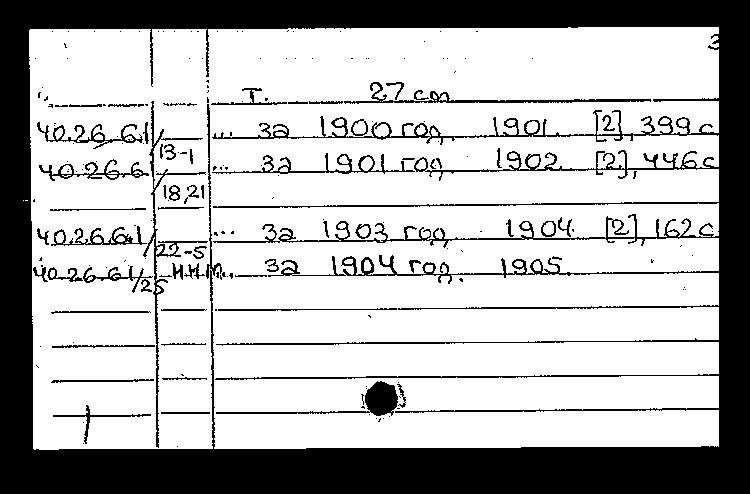 3
т. 27 см
40.26.6.1/13-1 ... за 1900 год. 1901. [2], 399 с
40.26.6.1/18,21 ... за 1901 год. 1902. [2], 446 с
40.26.6.1/22-5 ... за 1903 год 1904. [2], 162 с
40.26.6.1/25 ... за 1904 год. 1905.